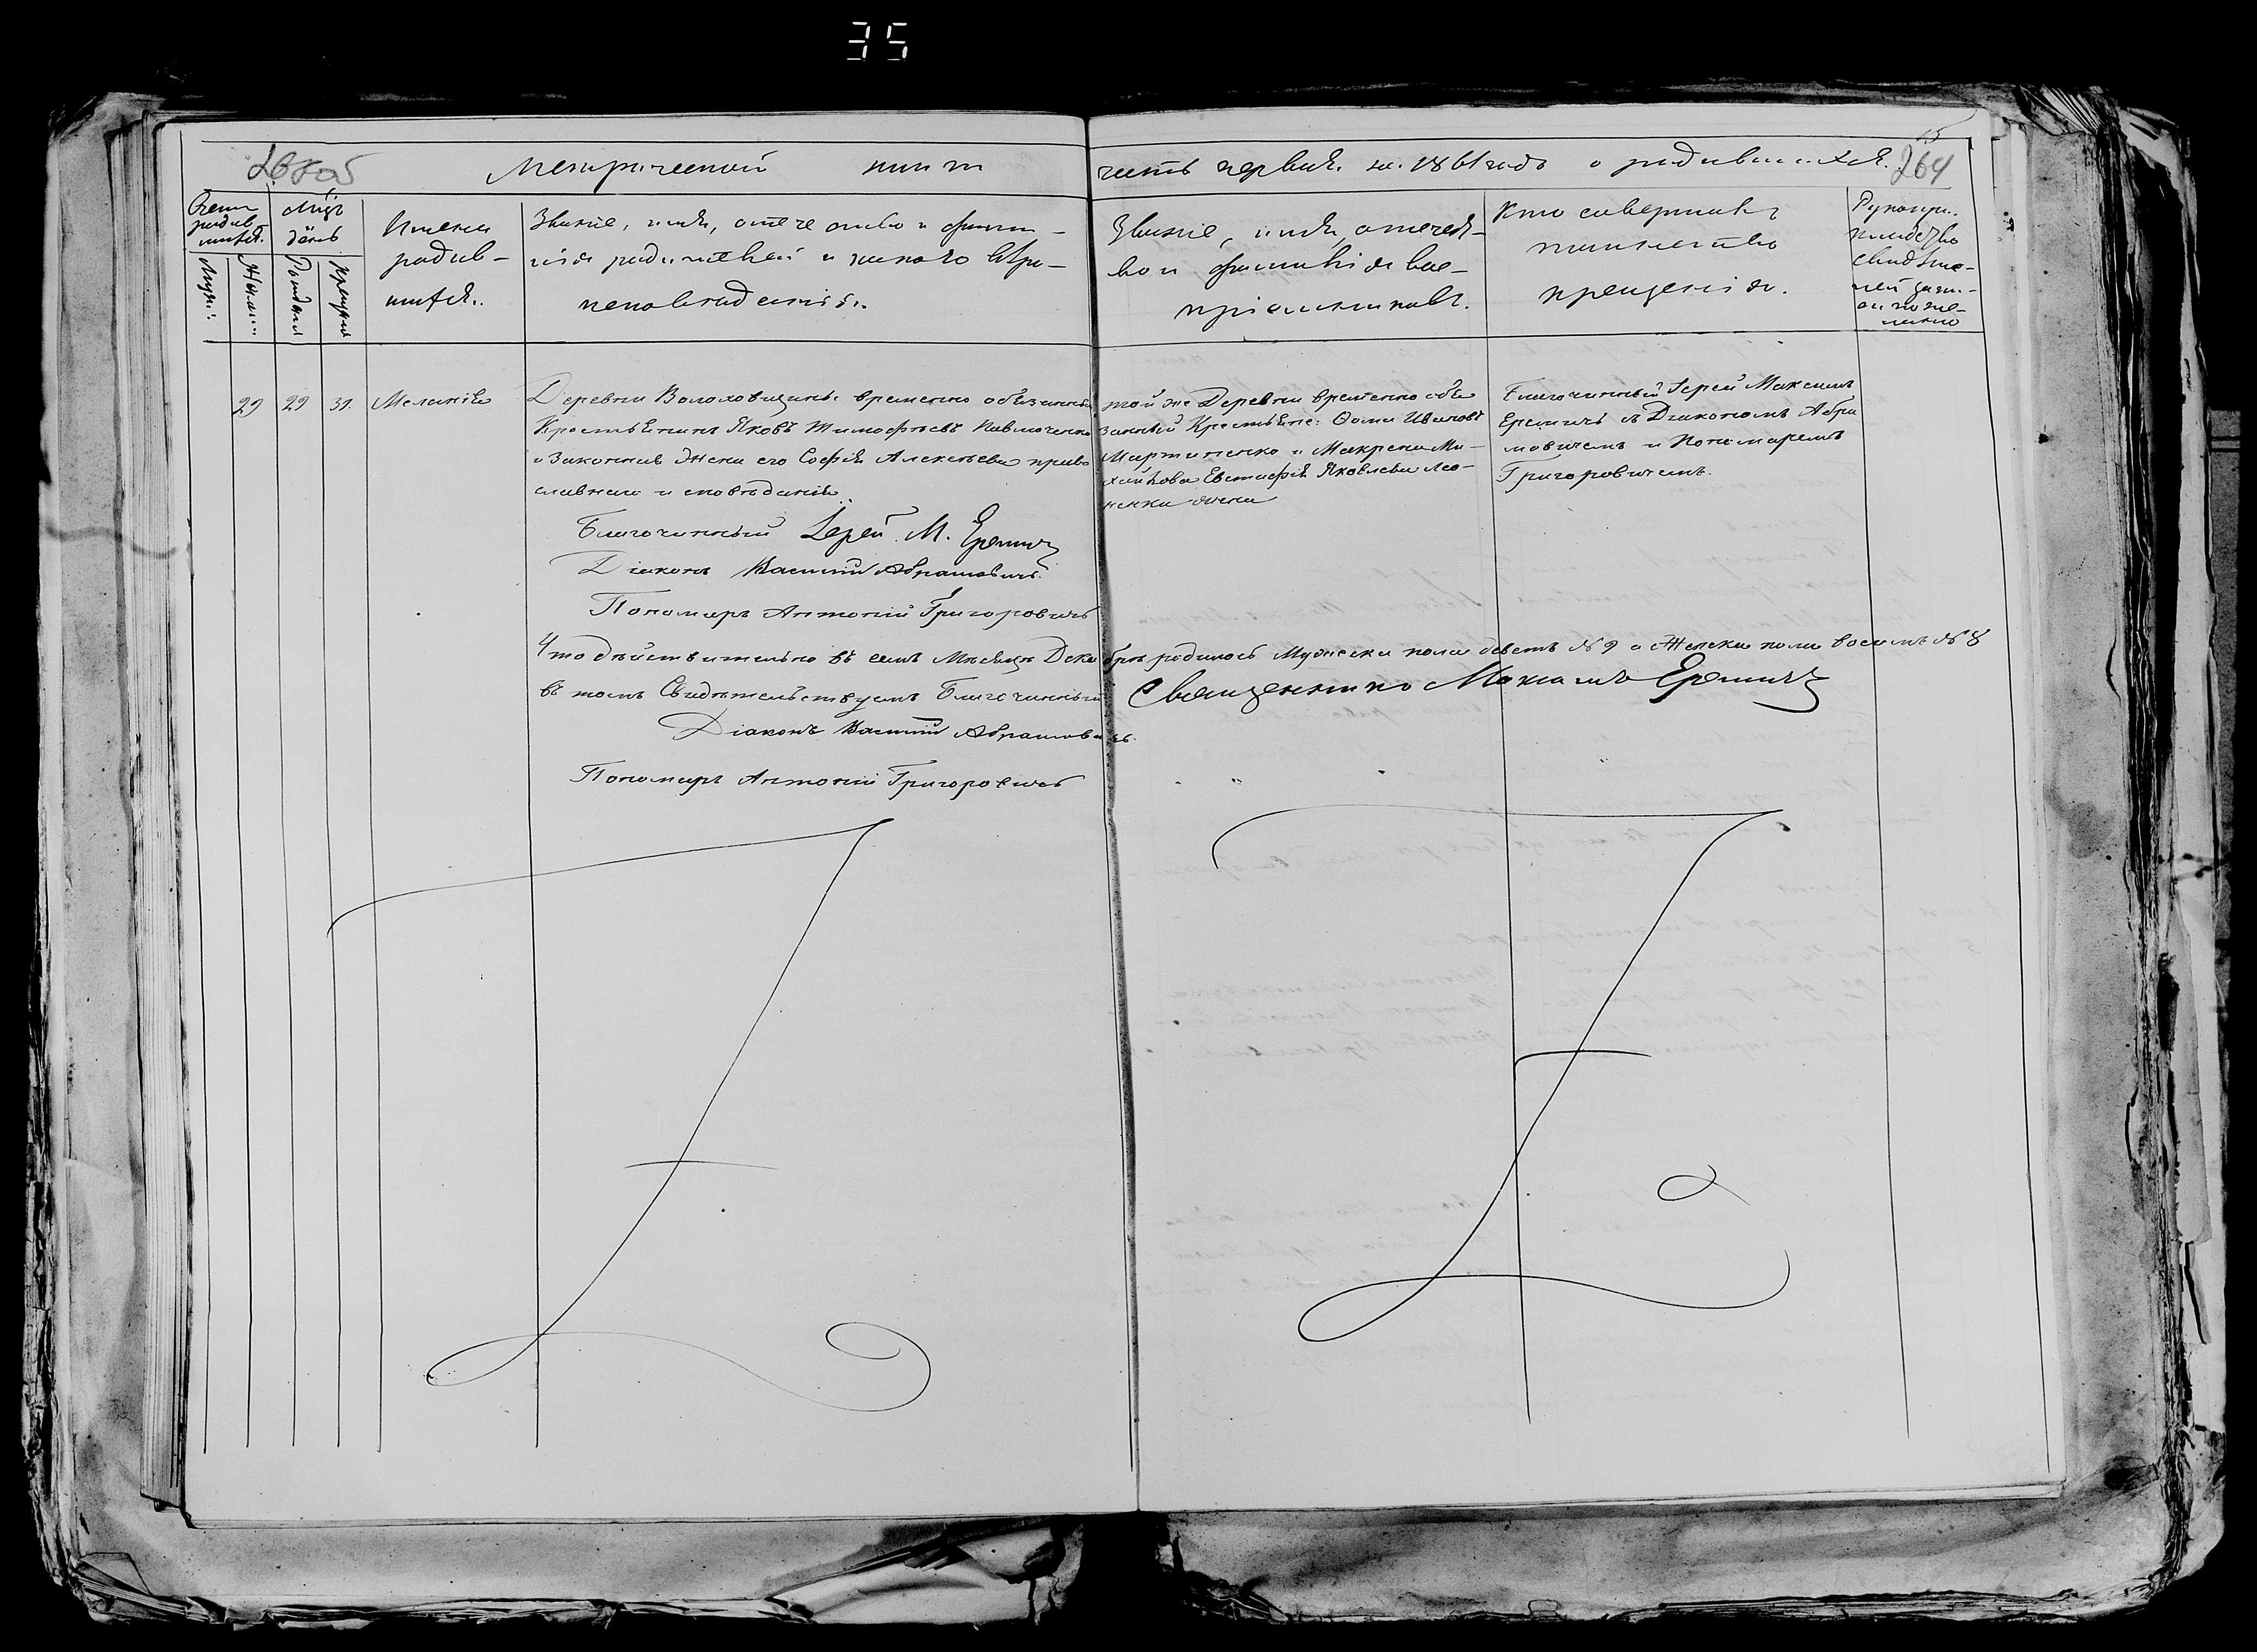 35
15
264
Метрической книги
часть первая на 1861 годъ о родившихся.
Счетъ родив-шихся.
Мѣсяцъ день
Мужс:
Женск:
Рожденія
Крещенія
Имена
родив-
шихся.
Званіе, имя, отечество и фами-
лія родителей и какого вѣро-
исповѣданія.
Званіе, имя, отечест-
во и фамилія вос-
пріемниковъ.
Кто совершалъ
таинство
крещенія.
Рукопри-
кладство
свидѣте-
лей записи
по же-
ланію
29 29 31. Меланія
Деревни Волоховщины временно обязанный
Крестьянинъ Яковъ Тимофѣевъ Павлюченко
и Законная Жена его Софія Алексѣева право
славнаго исповѣданія.
той же Деревни временно обя
занный Крестьяне: Ѳома Ивановъ
Мартиненко и Макрена Ми-
хайлова Евстафія Яковлева Лео-
ненка жена
Благочинный Іерей Максимъ
Еремичъ съ Діакономъ Абра
мовичемъ и Пономаремъ
Григоровичемъ.
Благочинный Іерей М. Еремичъ
Діаконъ Василій Абрамовичъ.
Пономарь Антоній Григоровичъ
Что дѣйствительно въ семъ Мѣсяцѣ Декабрѣ родилось Мужеска пола девять № 9 а Женска пола восемь № 8
въ томъ Свидѣтельствуемъ Благочинный Священникъ Максимъ Еремичъ
Діаконъ Василій Абрамовичъ.
Пономарь Антоній Григоровичъ